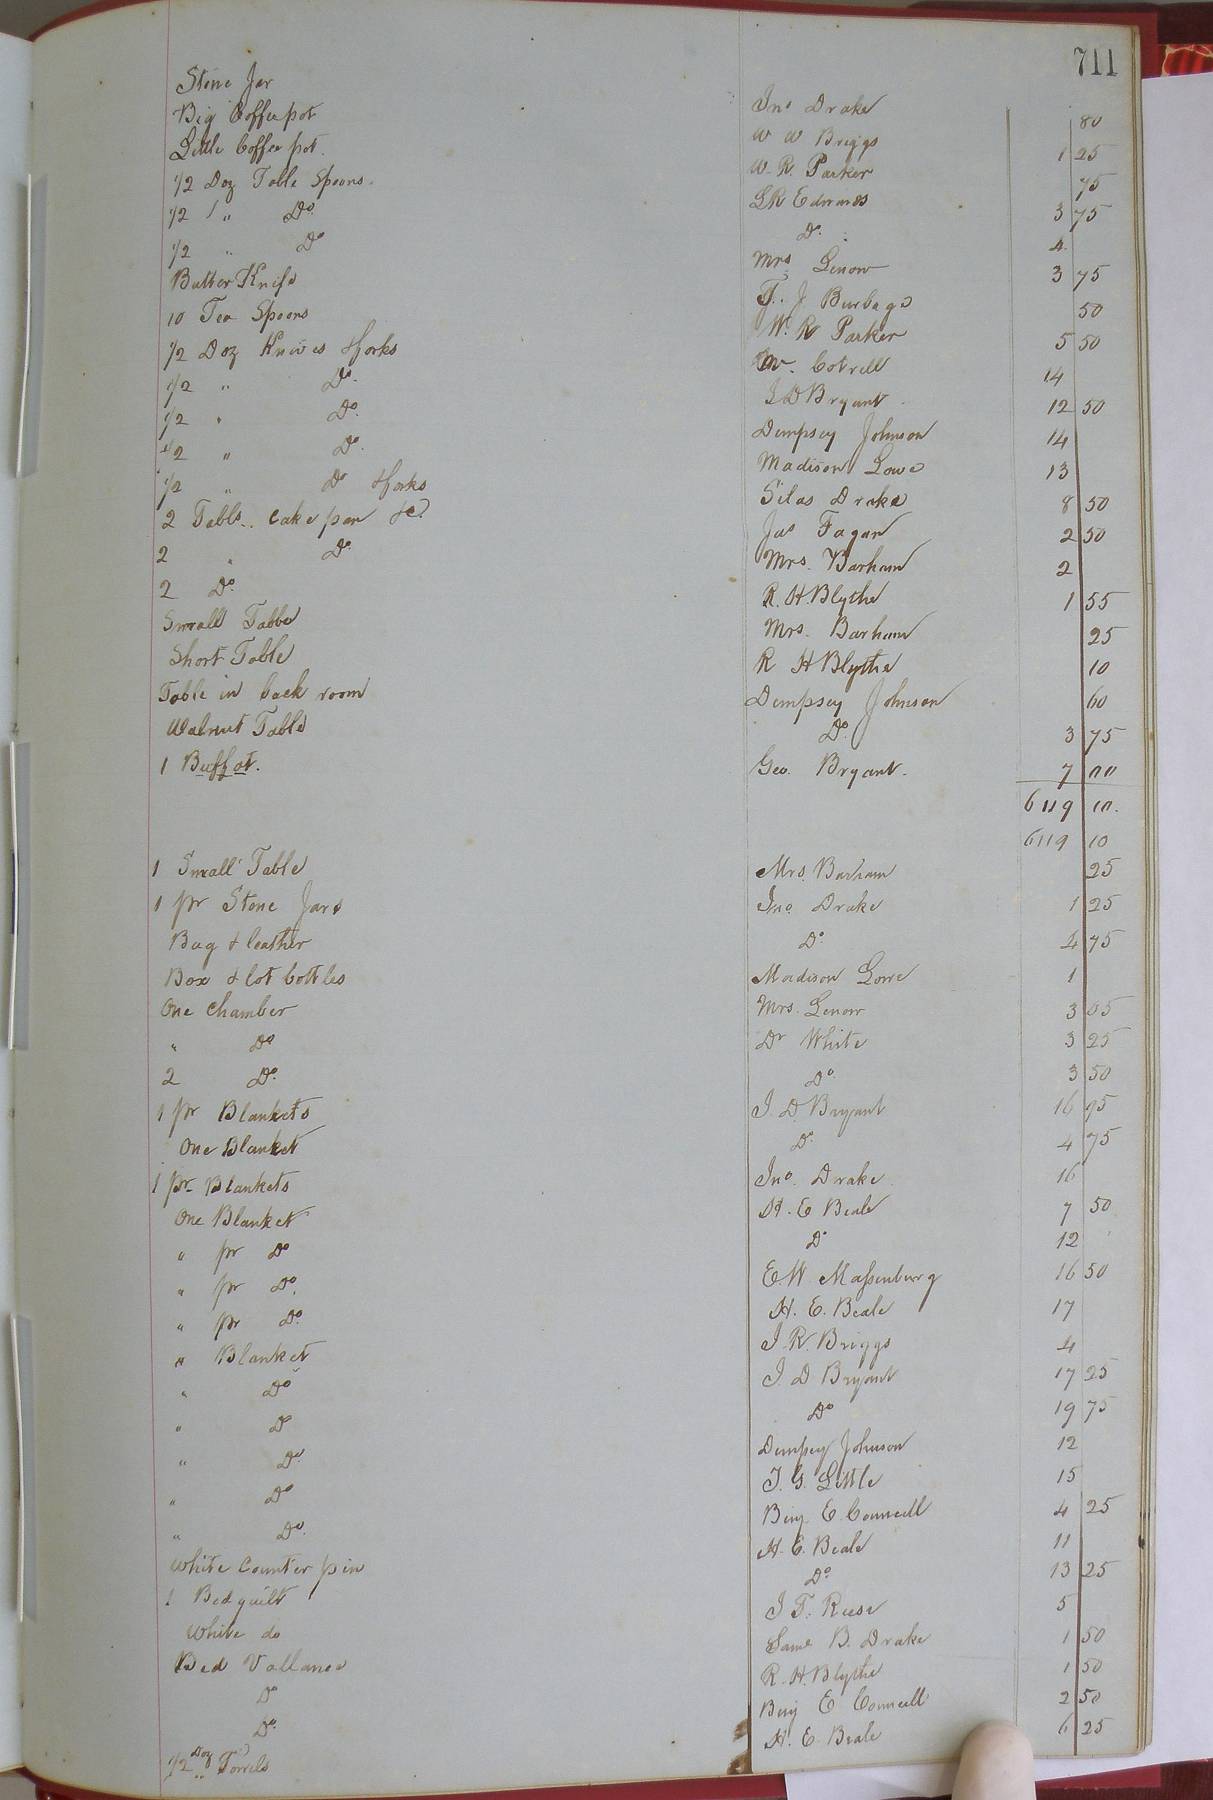 711
Stone Jar Jno Drake 80
Big Coffee pot W W Briggs 1 25
Little Coffee pot. W. R. Parker 75
1/2 Doz Table Spoons. L R Edwards 3 75
1/2 " Do. Do. 4
1/2 " Do Mrs Lenow 3 75
Butter Knife T. J Burbage 50
10 Tea Spoons W. R Parker 5 50
1/2 Doz Knives & forks Cotrell 14
1/2 " Do. J D Bryant 12 50
1/2 " Do. Dempsey Johnson 14
1/2 " Do. Madison Lowe 13
1/2 " Do & forks Silas Drake 8 50
2 Table.. cake pan &c. Jas Fagan 2 50
2 " Do. Mrs. Barham 2
2 Do. R. H. Blythe 1 55
Small Table Mrs. Barham 25
Short Table R H Blythe 10
Table in back room Dempsey Johnson 60
Walnut Table Do. 3 75
1 Buffet. Geo. Bryant. 7 00
6119 10.
6119 10
1 Small Table Mrs. Barham 25
1 pr Stone Jars Jno. Drake 1 25
Bag & leather Do. 4 75
Box & lot bottles Madison Lowe 1
One Chamber Mrs. Lenow 3 05
" Do Dr White 3 25
2 Do. Do. 3 50
1 pr Blankets J. D Bryant 16 95
One Blanket Do. 4 75
1 pr Blankets Jno. Drake 16
One Blanket H. E Beale 7 50
" pr Do Do 12
" pr Do. E. W Massenburg 16 50
" pr Do. H. E. Beale 17
" Blanket J. R. Briggs 4
" Do J. D Bryant 17 25
" Do Do 19 75
" Do. Dempsey Johnson 12
" Do J. G. Little 15
" Do. Benj. E. Councill 4 25
White Counter pin H. E. Beale 11
1 Bed quilt Do. 13 25
White do J T. Reese 5
Bed Vallance Saml B. Drake 1 50
Do R. H. Blythe 1 50
Do. Benj E Councill 2 50
1/2 Doz Towels H. E. Beale 6 25